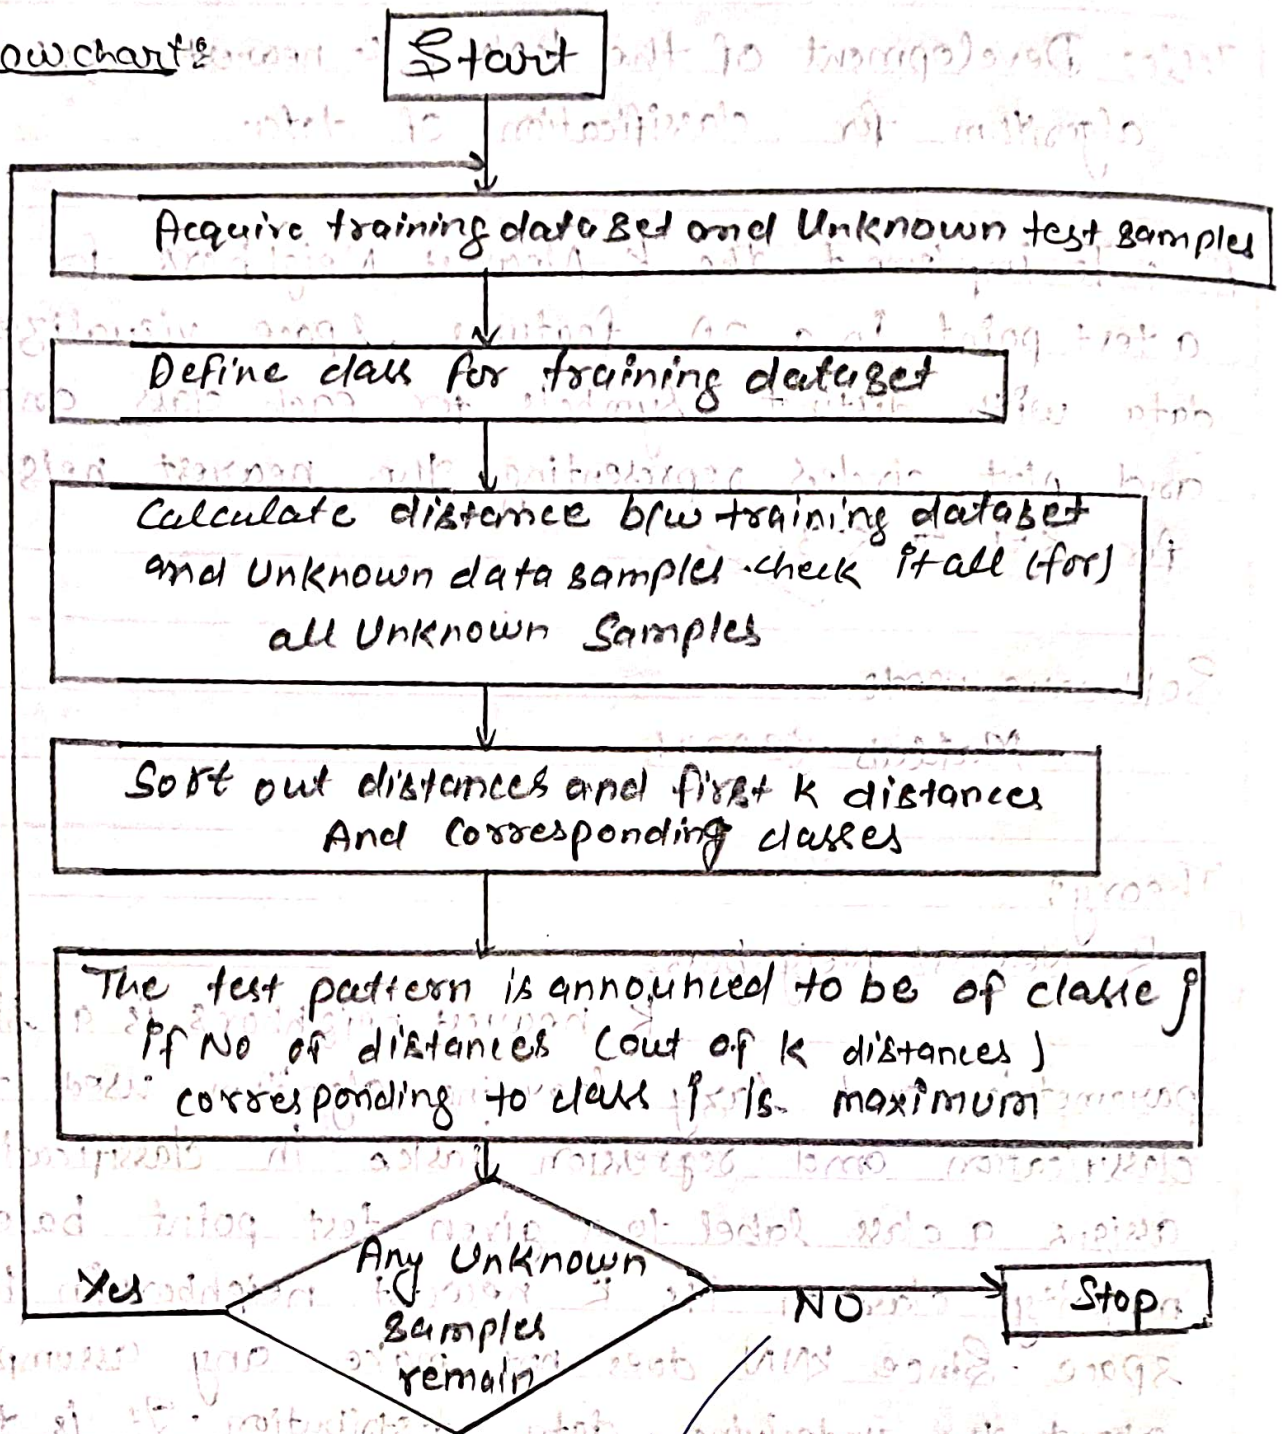 owchart :
Start
Acquire training dataset and Unknown test samples
Define class for training dataset
Calculate distance b/w training dataset
and Unknown data samples . check it all (for)
all Unknown Samples
Sort out distances and first k distances
And Corresponding classes
The test pattern is announced to be of classe j
if No of distances (out of k distances)
corresponding to class j is maximum
Any Unknown
samples
remain
Yes
NO
Stop